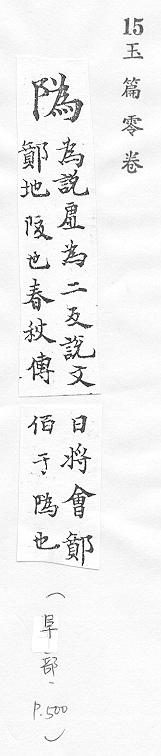 15玉篇零卷
䧦
為說虛為二反說文
鄭地阪也春秋傳
日將會鄭
佰于䧦也
(阜部 P.500)